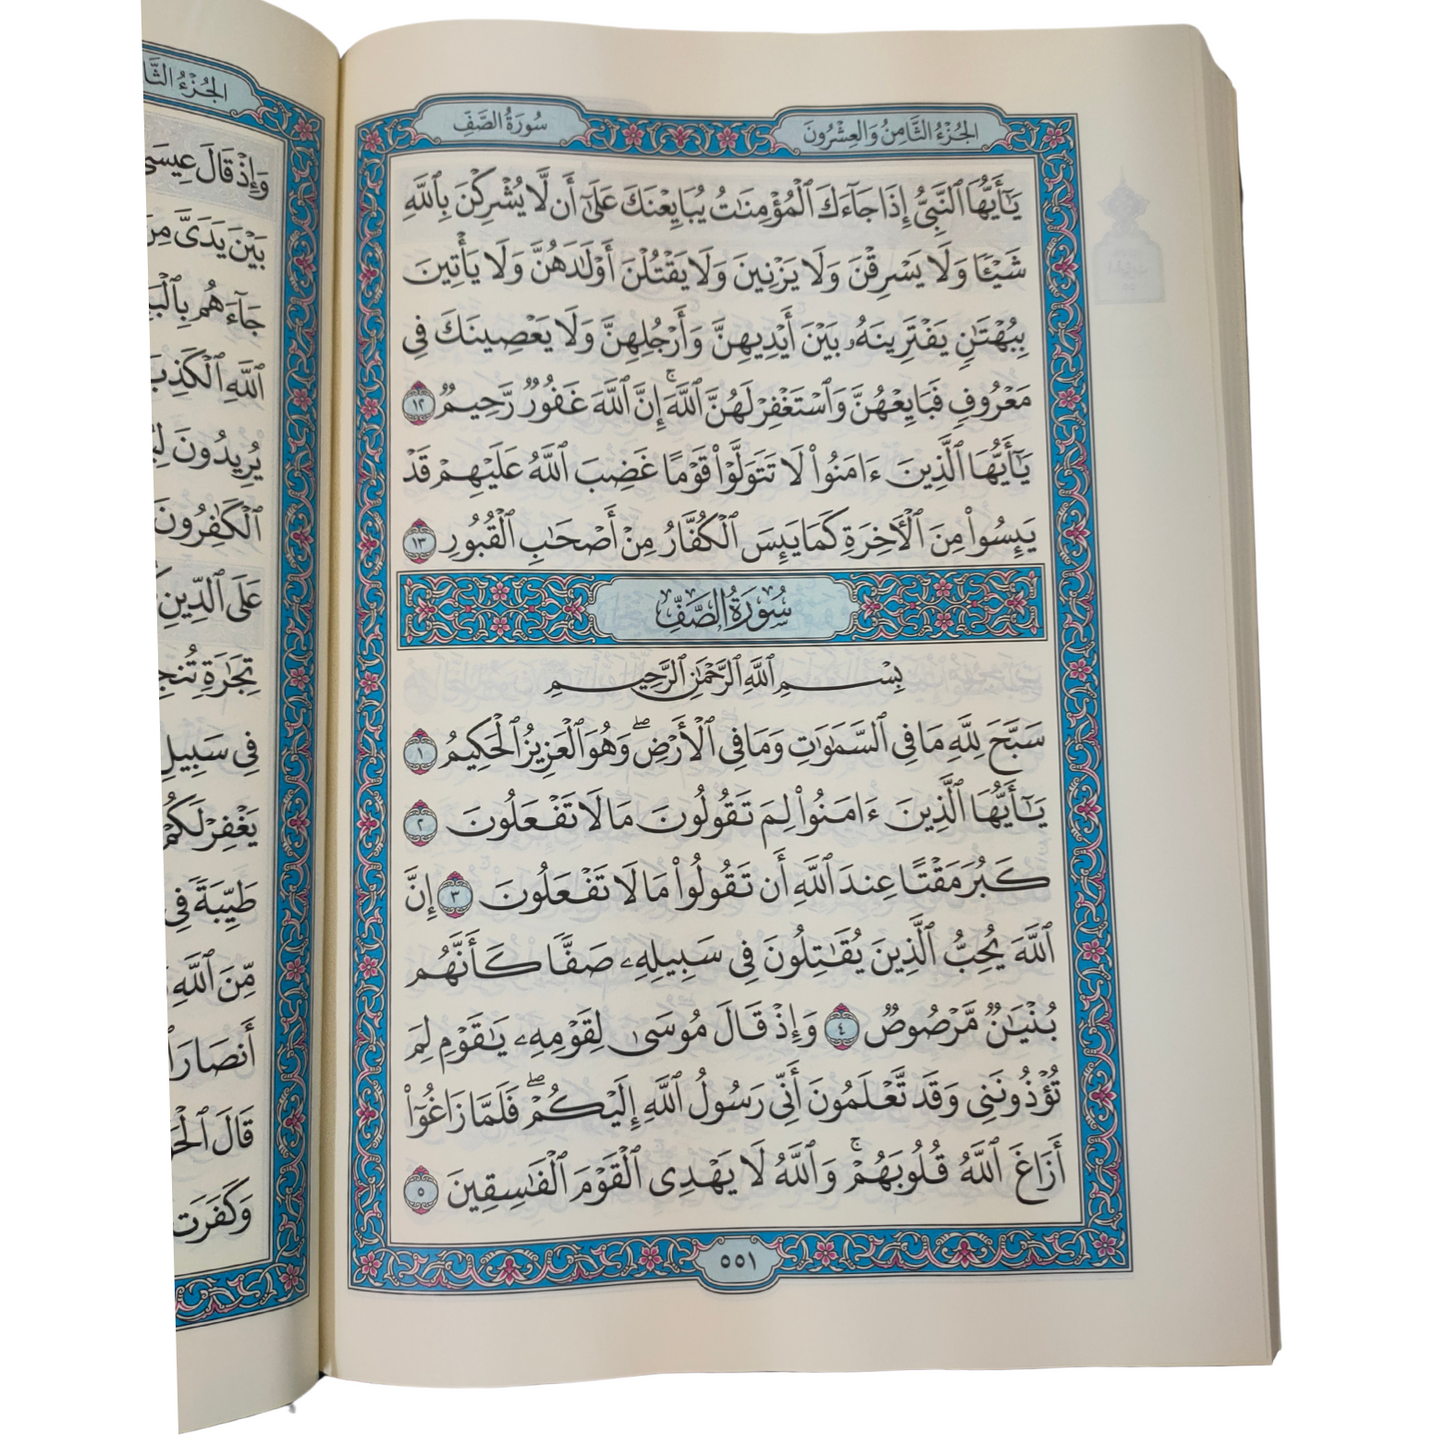 الجُزْءُ الثَّامِنُ وَالعِشْرُونَ
سُورَةُ الصَّفِّ
يَٰٓأَيُّهَا ٱلنَّبِيُّ إِذَا جَآءَكَ ٱلْمُؤْمِنَٰتُ يُبَايِعْنَكَ عَلَىٰٓ أَن لَّا يُشْرِكْنَ بِٱللَّهِ
شَيْـًٔا وَلَا يَسْرِقْنَ وَلَا يَزْنِينَ وَلَا يَقْتُلْنَ أَوْلَٰدَهُنَّ وَلَا يَأْتِينَ
بِبُهْتَٰنٍ يَفْتَرِينَهُۥ بَيْنَ أَيْدِيهِنَّ وَأَرْجُلِهِنَّ وَلَا يَعْصِينَكَ فِي
مَعْرُوفٍ فَبَايِعْهُنَّ وَٱسْتَغْفِرْ لَهُنَّ ٱللَّهَۚ إِنَّ ٱللَّهَ غَفُورٌ رَّحِيمٌ ١٢
يَٰٓأَيُّهَا ٱلَّذِينَ ءَامَنُوا۟ لَا تَتَوَلَّوْا۟ قَوْمًا غَضِبَ ٱللَّهُ عَلَيْهِمْ قَدْ
يَئِسُوا۟ مِنَ ٱلْءَاخِرَةِ كَمَا يَئِسَ ٱلْكُفَّارُ مِنْ أَصْحَٰبِ ٱلْقُبُورِ ١٣
سُورَةُ الصَّفِّ
بِسْمِ ٱللَّهِ ٱلرَّحْمَٰنِ ٱلرَّحِيمِ
سَبَّحَ لِلَّهِ مَا فِي ٱلسَّمَٰوَٰتِ وَمَا فِي ٱلْأَرْضِۖ وَهُوَ ٱلْعَزِيزُ ٱلْحَكِيمُ ١
يَٰٓأَيُّهَا ٱلَّذِينَ ءَامَنُوا۟ لِمَ تَقُولُونَ مَا لَا تَفْعَلُونَ ٢
كَبُرَ مَقْتًا عِندَ ٱللَّهِ أَن تَقُولُوا۟ مَا لَا تَفْعَلُونَ ٣ إِنَّ
ٱللَّهَ يُحِبُّ ٱلَّذِينَ يُقَٰتِلُونَ فِي سَبِيلِهِۦ صَفًّا كَأَنَّهُم
بُنْيَٰنٌ مَّرْصُوصٌ ٤ وَإِذْ قَالَ مُوسَىٰ لِقَوْمِهِۦ يَٰقَوْمِ لِمَ
تُؤْذُونَنِي وَقَد تَّعْلَمُونَ أَنِّي رَسُولُ ٱللَّهِ إِلَيْكُمْۖ فَلَمَّا زَاغُوٓا۟
أَزَاغَ ٱللَّهُ قُلُوبَهُمْۚ وَٱللَّهُ لَا يَهْدِي ٱلْقَوْمَ ٱلْفَٰسِقِينَ ٥
٥٥١
الجُزْءُ
وَإِذْ قَالَ عِيسَى
بَيْنَ يَدَيَّ مِنَ
جَآءَهُم
ٱللَّهِ ٱلْكَذِبَ
يُرِيدُونَ
ٱلْكَٰفِرُونَ
عَلَى ٱلدِّينِ
تِجَٰرَةٍ
فِي سَبِيلِ
يَغْفِرْ لَكُمْ
طَيِّبَةً فِي
مِّنَ ٱللَّهِ
قَالَ
وَكَفَرَت